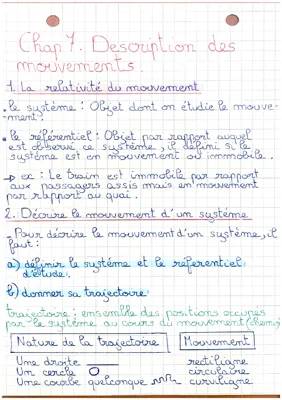 Chap 7. Description des
mouvements.
1. La relativité du mouvement
• le système : Objet dont on étudie le mouve-
-ment.
• le référentiel : Objet par rapport auquel
est observé ce système, il défini si le
système est en mouvement ou immobile.
→ ex : Le train est immobile par rapport
aux passagers assis mais en mouvement
par rapport au quai.
2. Décrire le mouvement d'un système
- Pour décrire le mouvement d'un système, il
faut :
a) définir le système et le référentiel
d'étude.
b) donner sa trajectoire
trajectoire : ensemble des positions occupés
par le système au cours du mouvement (chemin)
Nature de la trajectoire Mouvement
Une droite rectiligne
Un cercle circulaire
Une courbe quelconque curviligne